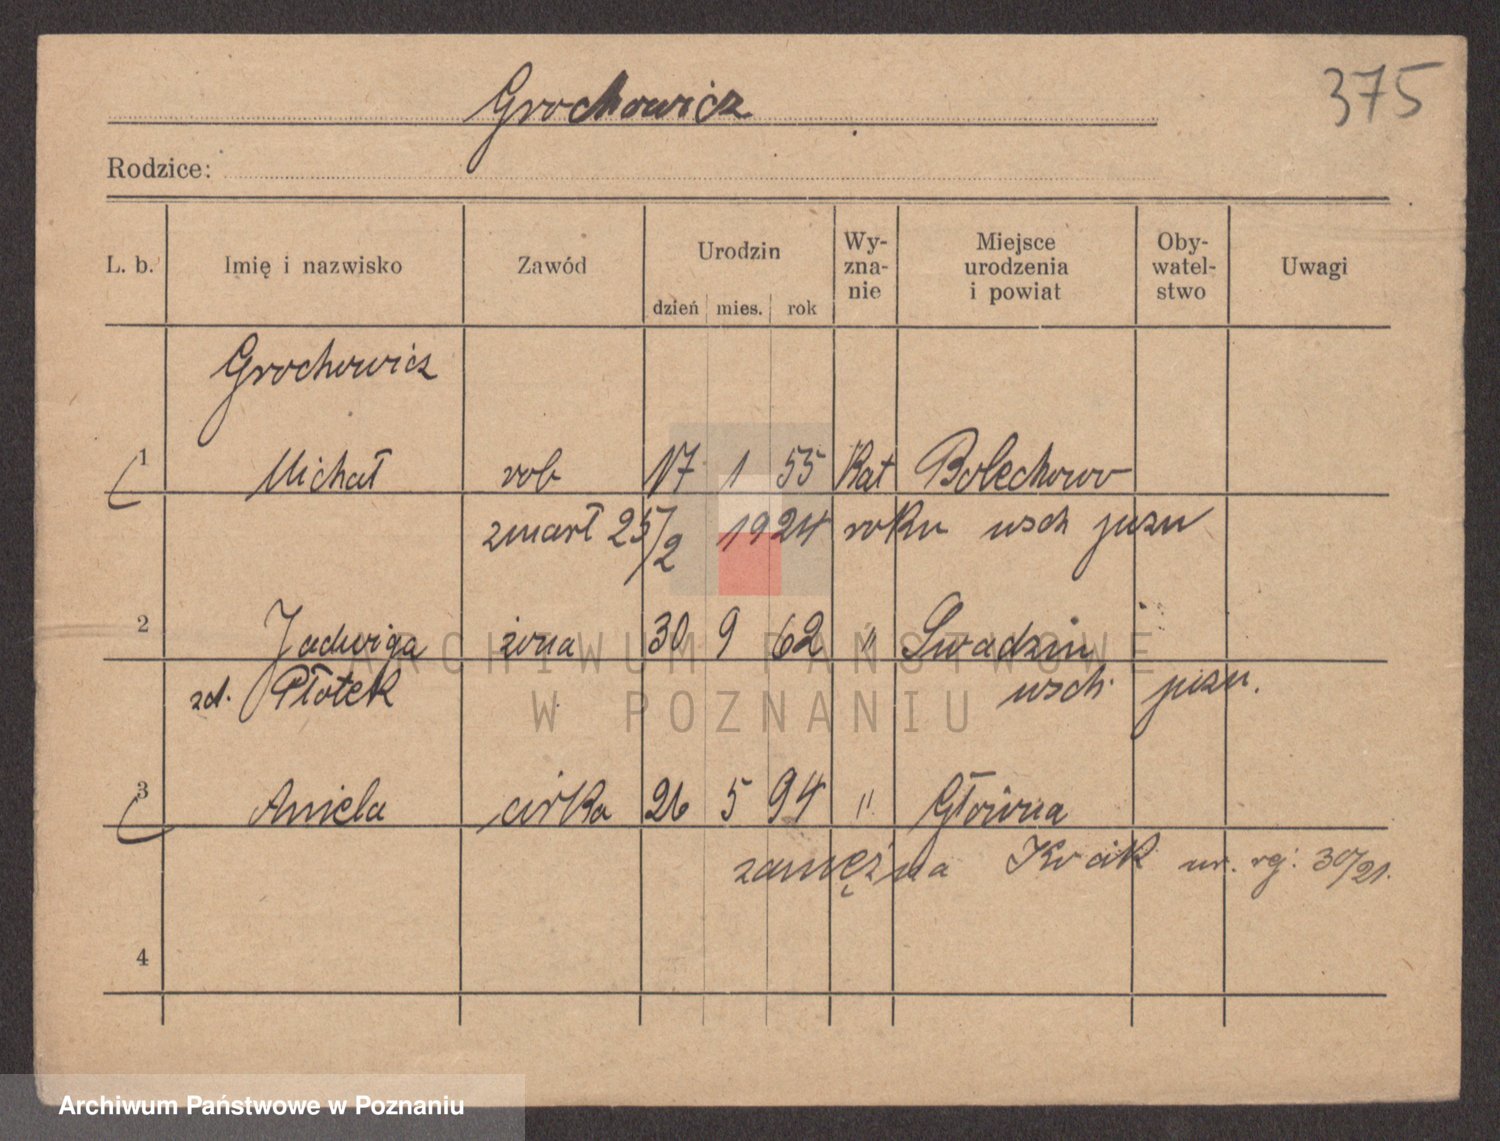 375
Grochowicz
Rodzice:
L. b. Imię i nazwisko Zawód Urodzin dzień mies. rok Wy-zna-nie Miejsce urodzenia i powiat Oby-watel-stwo Uwagi
Grochowicz
1 Michał rob 17 1 55 Kat Bolechowo
zmarł 25/2 1924 roku wsch
2 Jadwiga żona 30 9 62 " Swadzim
zd. Płotek wsch.
3 Aniela córka 26 5 94 " Główna
zamężna Kvcik nr. rej. 30/21.
4
ARCHIWUM PAŃSTWOWE
W POZNANIU
Archiwum Państwowe w Poznaniu